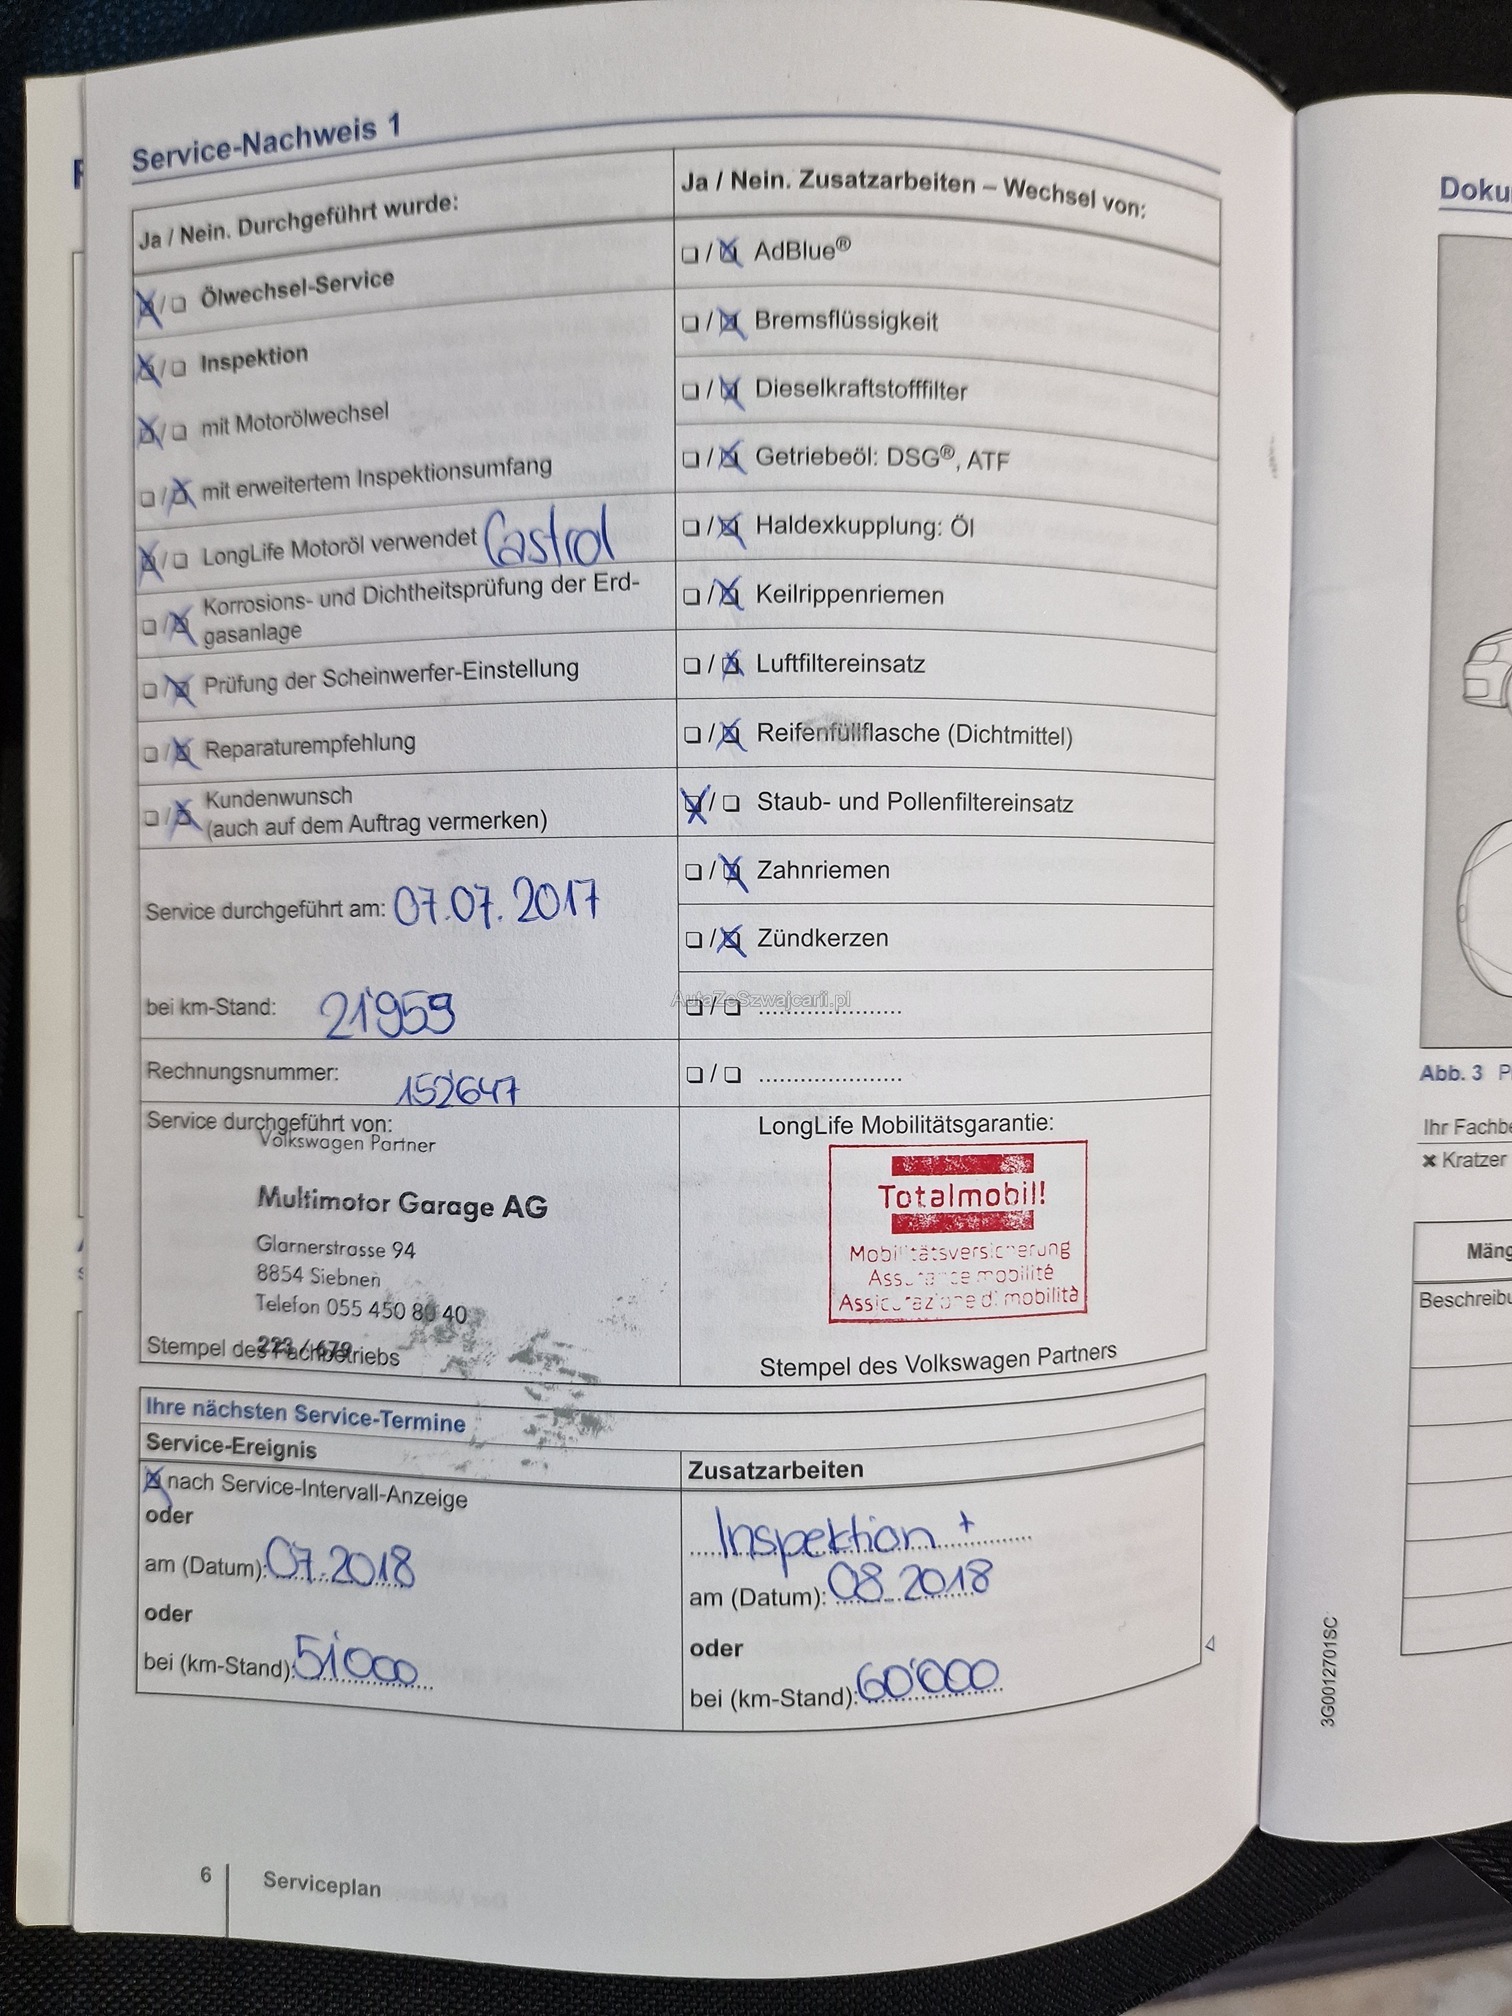 Service-Nachweis 1
Ja / Nein. Durchgeführt wurde:
☒/☐ Ölwechsel-Service
☒/☐ Inspektion
☒/☐ mit Motorölwechsel
☐/☒ mit erweitertem Inspektionsumfang
☒/☐ LongLife Motoröl verwendet Castrol
☐/☒ Korrosions- und Dichtheitsprüfung der Erd-
gasanlage
☐/☒ Prüfung der Scheinwerfer-Einstellung
☐/☒ Reparaturempfehlung
☐/☒ Kundenwunsch
(auch auf dem Auftrag vermerken)
Service durchgeführt am: 07.07.2017
bei km-Stand: 21'959
Rechnungsnummer: 152647
Service durchgeführt von:
Volkswagen Partner
Multimotor Garage AG
Glarnerstrasse 94
8854 Siebnen
Telefon 055 450 80 40
223 / 679
Stempel des Fachbetriebs
Ja / Nein. Zusatzarbeiten – Wechsel von:
☐/☒ AdBlue®
☐/☒ Bremsflüssigkeit
☐/☒ Dieselkraftstofffilter
☐/☒ Getriebeöl: DSG®, ATF
☐/☒ Haldexkupplung: Öl
☐/☒ Keilrippenriemen
☐/☒ Luftfiltereinsatz
☐/☒ Reifenfüllflasche (Dichtmittel)
☒/☐ Staub- und Pollenfiltereinsatz
☐/☒ Zahnriemen
☐/☒ Zündkerzen
AutaZeSzwajcarii.pl
☐/☐ ......................
☐/☐ ......................
LongLife Mobilitätsgarantie:
Totalmobil!
Mobilitätsversicherung
Assurance mobilité
Assicurazione di mobilità
Stempel des Volkswagen Partners
Ihre nächsten Service-Termine
Service-Ereignis
☒ nach Service-Intervall-Anzeige
oder
am (Datum): 07.2018
oder
bei (km-Stand): 51'000
Zusatzarbeiten
Inspektion +
am (Datum): 08.2018
oder
bei (km-Stand): 60'000
6 Serviceplan
3G0012701SC
Abb. 3
✖ Kratzer